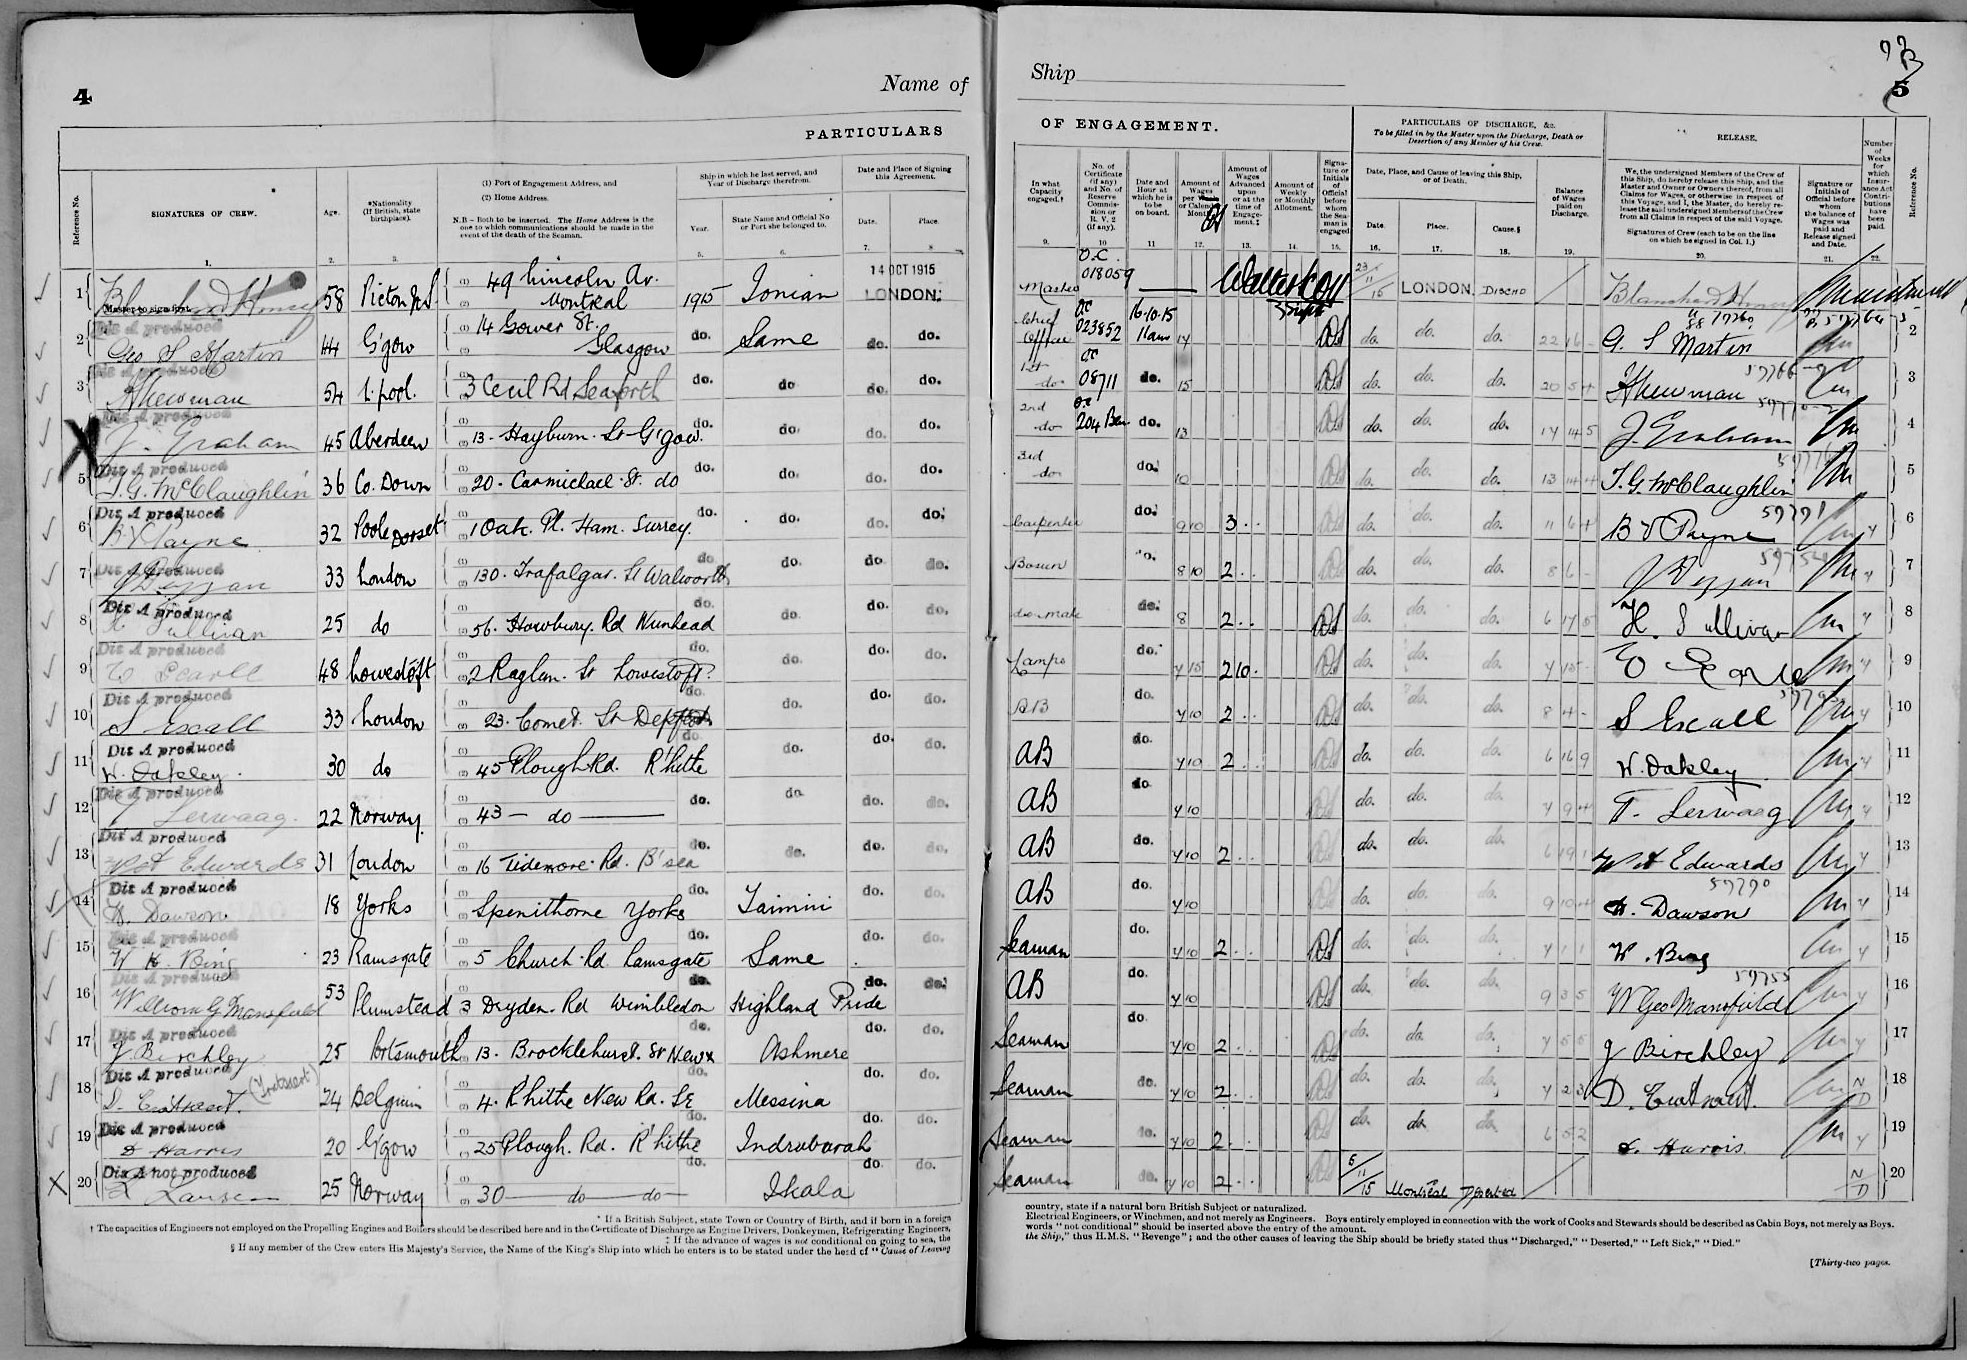 4
Name of
PARTICULARS
Reference No.
SIGNATURES OF CREW.
Age.
*Nationality
(If British, state
birthplace).
(1) Port of Engagement Address, and
(2) Home Address.
N.B – Both to be inserted. The Home Address is the
one to which communications should be made in the
event of the death of the Seaman.
Ship in which he last served, and
Year of Discharge therefrom.
Year.
State Name and Official No
or Port she belonged to.
Date and Place of Signing
this Agreement.
Date.
Place.
1. 2. 3. 4. 5. 6. 7. 8
1 Blanchard Henry 58 Picton N.S 49 Lincoln Av. Montreal 1915 Ionian 14 OCT 1915 LONDON.
Master to sign first.
Dis A produced
2 Geo S Martin 44 G'gow 14 Gower St. Glasgow do. Same do. do.
Dis A produced
3 Newman 54 L'pool. 3 Cecil Rd Seaforth do. do do. do.
Dis A produced
4 J. Graham 45 Aberdeen 13. Hayburn. St G'gow. do. do. do. do.
Dis A produced
5 T.G. McClaughlin 36 Co. Down 20. Carmichael St. do do. do. do. do.
Dis A produced
6 B V Payne 32 Poole Dorset 1 Oak. Pl. Ham. Surrey. do. do. do. do.
Dis A produced
7 33 London 130. Trafalgar. St Walworth do do. do. do.
Dis A produced
8 H Sullivan 25 do 56. Hawbury. Rd Nunhead do. do. do. do.
Dis A produced
9 48 Lowestoft 2 Raglan. St Lowestoft. do. do. do. do.
Dis A produced
10 S Escall 33 London 23. Comet. St Deptford. do. do. do. do.
Dis A produced
11 W. Oakley. 30 do 45 Plough Rd. R'hithe do. do. do. do.
Dis A produced
12 T Lerwaag. 22 Norway. 43 — do — do. do. do. do.
Dis A produced
13 Edwards 31 London 16 Tidemore. Rd. B'sea do. do. do. do.
Dis A produced
14 Dawson 18 Yorks Spenithorne Yorks do. Taimini do. do.
Dis A produced
15 W H. Bing 23 Ramsgate 5 Church. Rd. Ramsgate do. Same do. do.
Dis A produced
16 William G Mansfield 53 Plumstead 3 Dryden. Rd Wimbledon do. Highland Pride do. do.
Dis A produced
17 J. Birchley 25 Portsmouth 13. Brocklehurst. St New x do. Ashmere do. do.
Dis A produced
18 D. 24 Belgium 4. R'hithe New Rd. SE do. Messina do. do.
Dis A produced
19 Harris 20 G'gow 25 Plough. Rd. R'hithe do. Indrabarah do. do.
Dis A not produced
20 Larsen 25 Norway 30 — do — do — do. Ikala do. do.
* If a British Subject, state Town or Country of Birth, and if born in a foreign
† The capacities of Engineers not employed on the Propelling Engines and Boilers should be described here and in the Certificate of Discharge as Engine Drivers, Donkeymen, Refrigerating Engineers,
‡ If the advance of wages is not conditional on going to sea, the
§ If any member of the Crew enters His Majesty's Service, the Name of the King's Ship into which he enters is to be stated under the head of "Cause of Leaving
Ship
5
OF ENGAGEMENT.
In what
Capacity
engaged.†
No. of
Certificate
(if any)
and No. of
Reserve
Commis-
sion or
R. V. 2
(if any).
Date and
Hour at
which he is
to be
on board.
Amount of
Wages
or Calendar
Month.
Amount of
Wages
Advanced
upon
or at the
time of
Engage-
ment.‡
Amount of
Weekly
or Monthly
Allotment.
Signa-
ture or
Initials
of
Official
before
whom
the Sea-
man is
engaged
PARTICULARS OF DISCHARGE, &c.
To be filled in by the Master upon the Discharge, Death or
Desertion of any Member of his Crew.
Date, Place, and Cause of leaving this Ship,
or of Death.
Date.
Place.
Cause.§
Balance
of Wages
paid on
Discharge.
RELEASE.
We, the undersigned Members of the Crew of
this Ship, do hereby release this Ship, and the
Master and Owner or Owners thereof, from all
Claims for Wages, or otherwise in respect of
this Voyage, and I, the Master, do hereby re-
lease the said undersigned Members of the Crew
from all Claims in respect of the said Voyage.
Signatures of Crew (each to be on the line
on which he signed in Col. 1.)
Signature or
Initials of
Official before
whom
the balance of
Wages was
paid and
Release signed
and Date.
Number
of
Weeks
for
which
Insur-
ance Act
Contri-
butions
have
been
paid.
Reference No.
9. 10 11 12. 13. 14. 15. 16. 17. 18. 19. 20. 21. 22.
Master O.C. 018059 23/11/15 LONDON. DISCHD Blanchard Henry
Chief Officer OC 023852 16.10.15 11am 17 do. do. do. 22 16 - G. S Martin 2
1st do OC 08711 do. 15 do. do. do. Newman 3
2nd do OC 204 Ben do. 13 do. do. do. 17 14 5 J. Graham 4
3rd do do. 10 do. do. do. 13 14 4 T.G. McClaughlin 5
Carpenter do. 9 10 3 . . do. do. do. 11 6 4 B V Payne 59771 6
Bosun do. 8 10 2 . . do. do. do. 8 6 - 7
do. mate do. 8 2 . . do. do. do. 6 17 5 H. Sullivan 8
Lamps do. 7 15 2 10 . do. do. do. 7 15 - 9
AB do. 7 10 2 . do. do. do. 8 4 - S Escall 10
AB do. 7 10 2 . . do. do. do. 6 16 9 W. Oakley 11
AB do. 7 10 do. do. do. 7 9 4 T. Lerwaag 12
AB do. 7 10 2 . . do. do. do. Edwards 13
AB do. 7 10 do. do. do. 9 10 4 Dawson 59770 14
Seaman do. 7 10 2 . . do. do. do. 7 1 1 W. Bing 15
AB do. 7 10 do. do. do. 9 3 5 W Geo Mansfield 59755 16
Seaman do. 7 10 2 . . do. do. do. 7 5 5 J Birchley 17
Seaman do. 7 10 2 . . do. do. do. 7 2 3 D. N/D 18
Seaman do. 7 10 2 . . do. do. do. 6 5 2 Harris. 19
Seaman do. 7 10 2 . . 6/11/15 Montreal Deserted N/D 20
country, state if a natural born British Subject or naturalized.
Electrical Engineers, or Winchmen, and not merely as Engineers. Boys entirely employed in connection with the work of Cooks and Stewards should be described as Cabin Boys, not merely as Boys.
words "not conditional" should be inserted above the entry of the amount.
the Ship," thus H.M.S. "Revenge"; and the other causes of leaving the Ship should be briefly stated thus "Discharged," "Deserted," "Left Sick," "Died."
[Thirty-two pages.